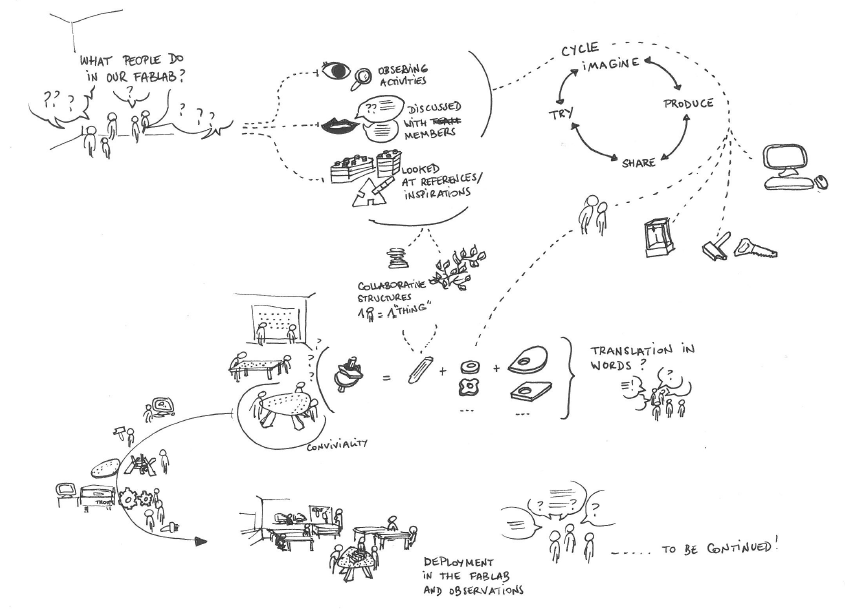 WHAT PEOPLE DO
IN OUR FABLAB?
?? ?
?
? ? ?
OBSERVING
ACTIVITIES
??
DISCUSSED
WITH
MEMBERS
LOOKED
AT REFERENCES/
INSPIRATIONS
CYCLE
IMAGINE
PRODUCE
SHARE
TRY
COLLABORATIVE
STRUCTURES
1 = 1 "THING"
?
?
?
?
= + +
... ...
TRANSLATION IN
WORDS?
?
CONVIVIALITY
DEPLOYMENT
IN THE FABLAB
AND OBSERVATIONS
? ? ?
..... TO BE CONTINUED!